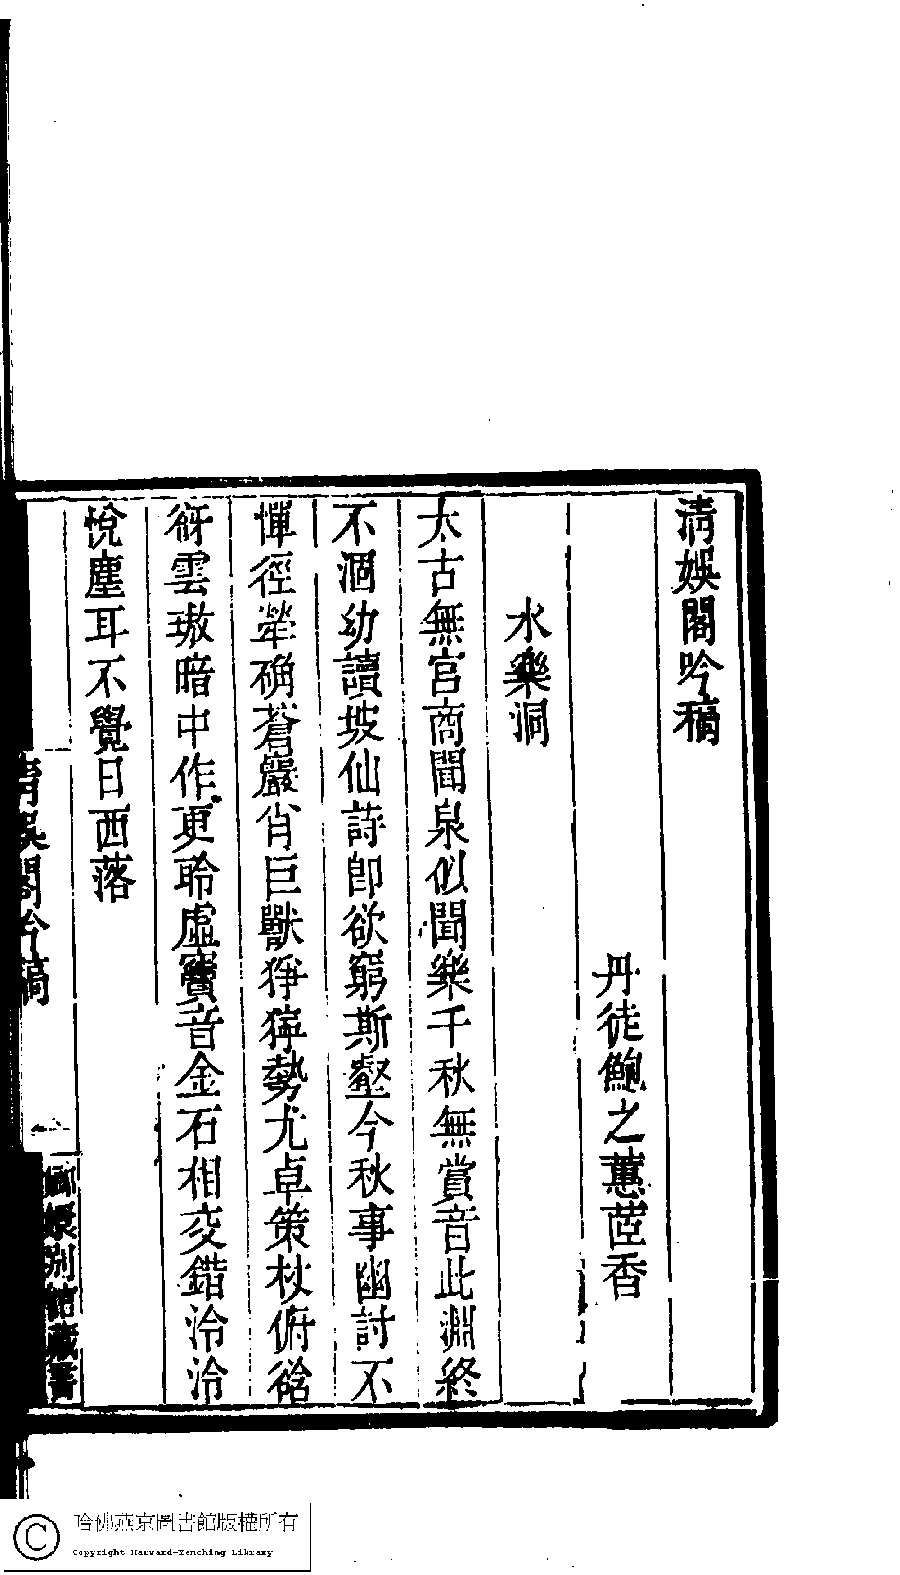 清娛閣吟稿
丹徒鮑之蕙茝香
水樂洞
太古無宮商聞泉似聞樂千秋無賞音此淵終
不涸幼讀坡仙詩卽欲窮斯壑今秋事幽討不
憚徑犖确蒼巖肖巨獸猙獰勢尤卓策杖俯谽
谺雲璈暗中作更聆虛竇音金石相交錯泠泠
悅塵耳不覺日西落
清娛閣吟稿
一
嬛別館藏書
哈佛燕京圖書館版權所有
Copyright Harvard-Yenching Library